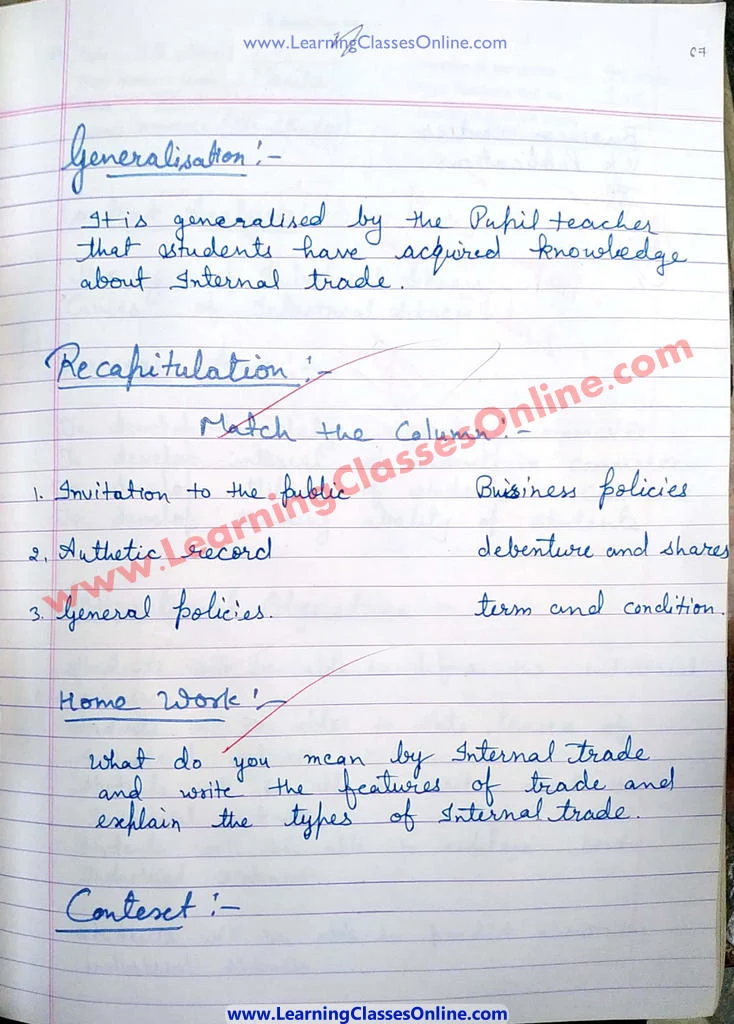 www.LearningClassesOnline.com
67
Generalisation :-
It is generalised by the Pupil teacher
that students have acquired knowledge
about Internal trade.
Recapitulation :-
Match the Column :-
1. Invitation to the public Buisiness policies
2. Authetic record debenture and shares
3. General policies. term and condition.
www.LearningClassesOnline.com
Home Work :-
What do you mean by Internal trade
and write the features of trade and
explain the types of Internal trade.
Contexct :-
www.LearningClassesOnline.com